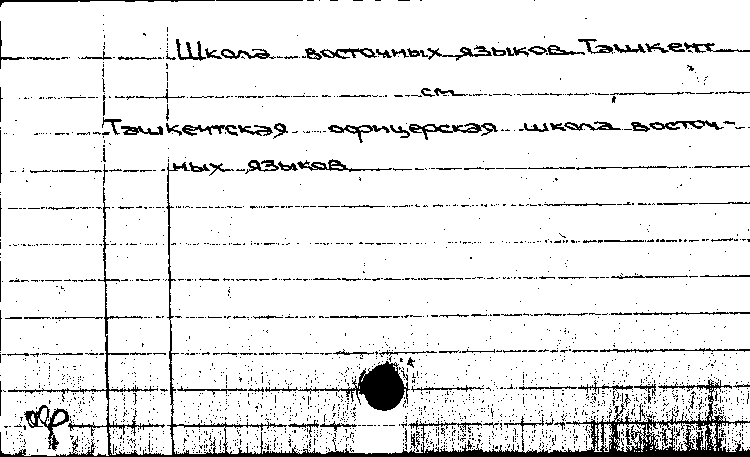 Школа восточных языков. Ташкент
см.
Ташкентская офицерская школа восточ-
ных языков